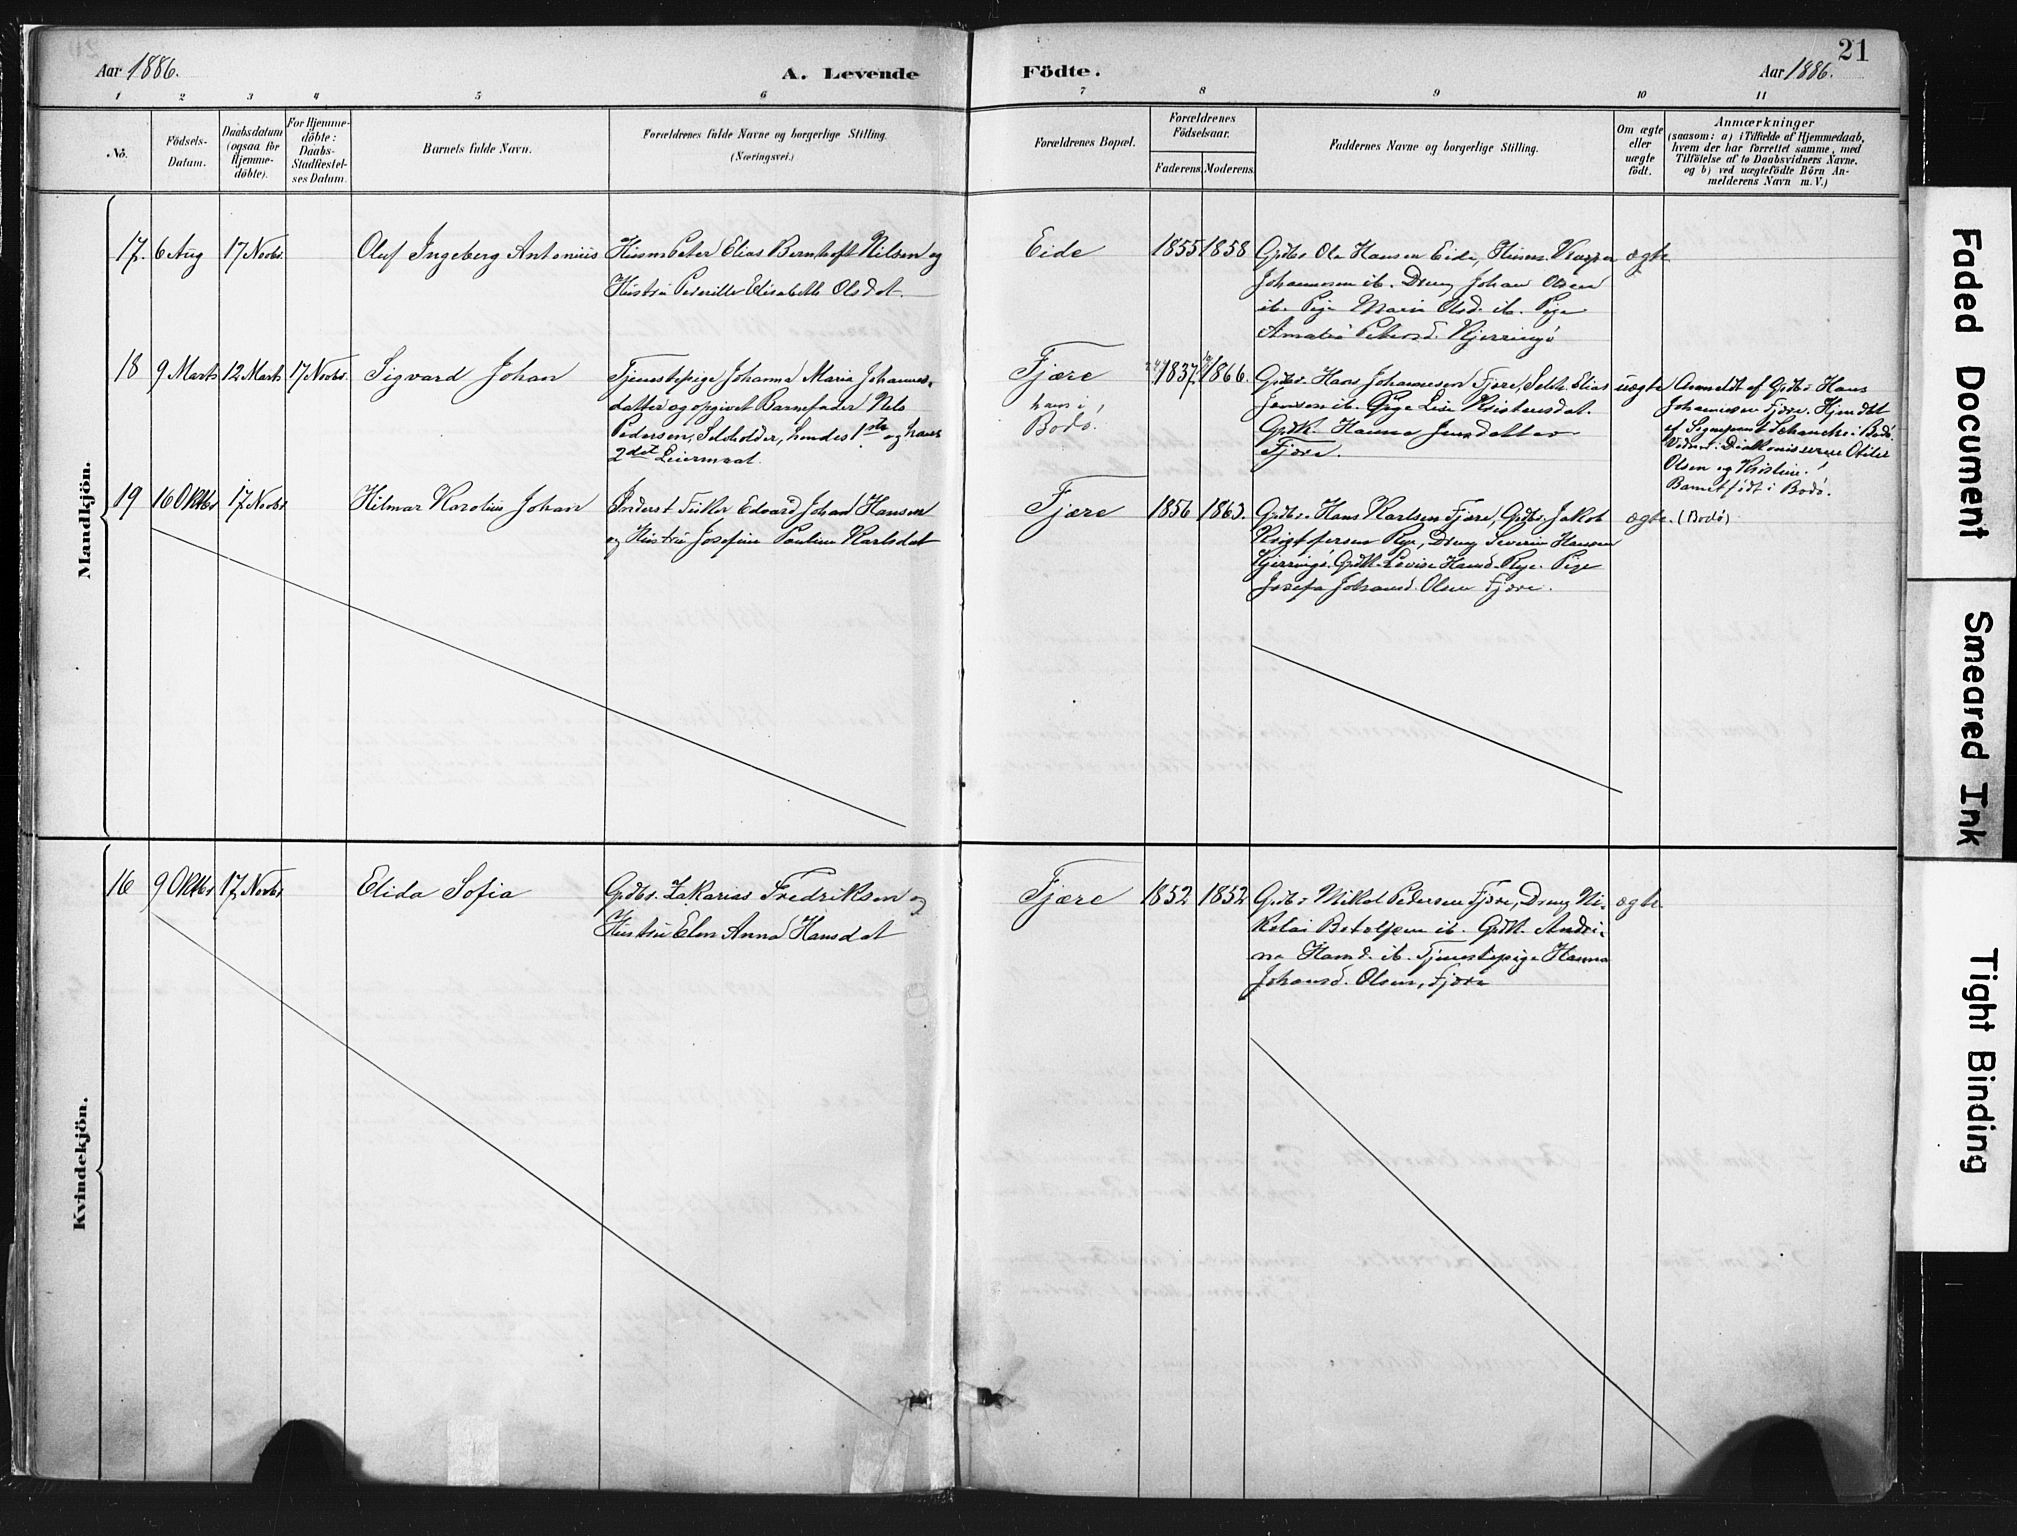 21
Aar 1886.
A. Levende
Födte.
Aar 1886.
1
2
3
4
5
6
7
8
9
10
11
No.
Födsels-
Datum.
Daabsdatum
(ogsaa for
Hjemme-
döbte).
For Hjemme-
döbte:
Daabs-
Stadfæstel-
ses Datum.
Barnets fulde Navn.
Forældrenes fulde Navne og borgerlige Stilling.
(Næringsvei.)
Forældrenes Bopæl.
Forældrenes
Födselsaar.
Faderens. Moderens.
Faddernes Navne og borgerlige Stilling.
Om ægte
eller
uægte
födt.
Anmærkninger
(saasom: a) i Tilfælde af Hjemmedaab,
hvem der har forrettet samme, med
Tilföielse af to Daabsvidners Navne.
og b) ved uægtefödte Börn An-
melderens Navn m. V.)
Mandkjön.
17.
6 Aug
17 Novbr.
Oluf Ingeberg Antonius
Husm Peter Elias Bernhoft Nilsen og
Hustru Pernille Elisabeth Olsdat.
Eide
1855
1858
Grdbr Ole Hansen Eide, Husm.
Johannesen ib. Dreng Johan Olsen
ib. Pige Marie Olsd. ib. Pige
Amalia Petersd. Kjerringö
ægte
18
9 Marts
12 Marts
17 Novbr.
Sigvard Johan
Tjenestepige Johanna Maria Johannes-
datter og opgivet Barnefader Nels
Pedersen, Selvholder, hendes 1ste og hans
2det Leiermaal.
Fjære
hans i
Bodö.
1837.
1866.
Grdbr. Hans Johannesen Fjære, Selvh. Elias
Jensen ib. Pige Lise Kristensdat.
Grdk. Hanna Jensdatter
Fjære.
uægte
Anmeldt af Grdbr Hans
Johannesen Fjære. Hjemdbt
af Schancke i Bodö.
Vidner: Diakonisserne Otilie
Olsen og Kristine!
Barnet födt i Bodö.
19
16 Oktbr
17 Novbr
Hilmar Karolius Johan
Inderst Fisker Edvard Johan Hansen
og Hustru Josefine Pauline Karlsdat
Fjære
1856
1863.
Grdbr. Hans Karlsen Fjære, Grdbr. Jakob
Kristofersen Rye, Dreng Severin Hansen
Kjerringö. Grdk. Lovise Hansd. Rye. Pige
Josefa Johansd. Olsen Fjære.
ægte.
(Bodö)
Kvindekjön.
16
9 Oktbr
17 Novbr
Elida Sofia
Grdbr. Zakarias Fredriksen og
Hustru Elen Anna Hansdat
Fjære
1852
1852
Grdbr Mikal Pedersen Fjære, Dreng Ni-
kolai Betolfsen ib. Grdk. Andri-
ne Hansd. ib. Tjenestepige Hanna
Johansd. Olsen, Fjære
ægte.
Faded Document
Smeared Ink
Tight Binding